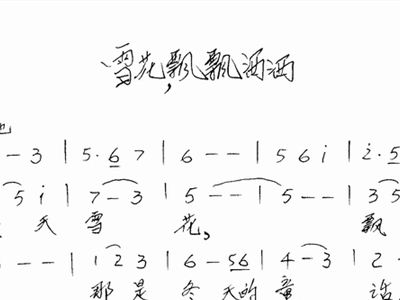 雪花,飘飘洒洒
– – 3 | 5· 6 7 | 6 – – | 5 6 i | i· 5
5 i | 7 – 3 | 5 – – | 5 – – | 3 5
天 雪 花, 飘
– – – | 1 2 3 | 6 – 56 | 4 – 3 | 2 –
那 是 冬 天的 童 话